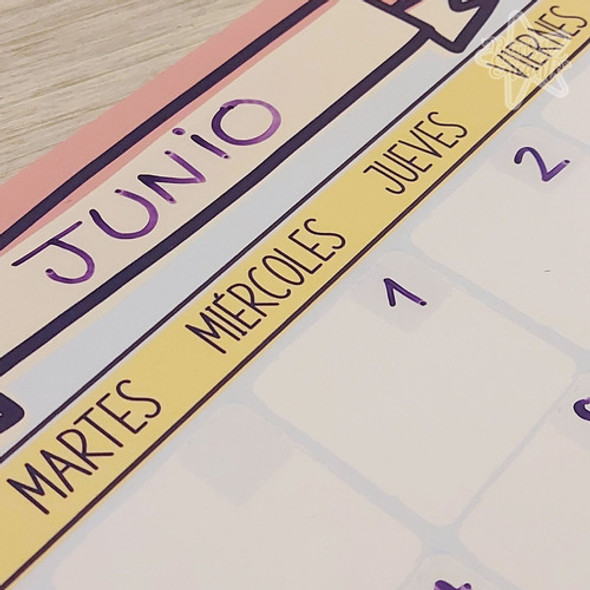 JUNIO
MARTES MIÉRCOLES JUEVES VIERNES
1 2